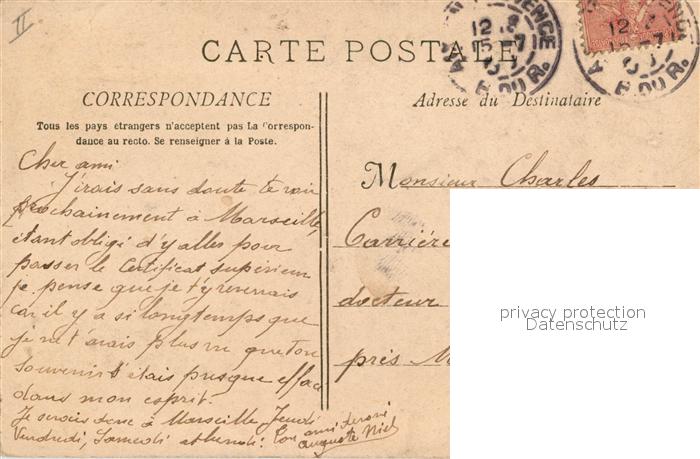 II
CARTE POSTALE
CORRESPONDANCE
Tous les pays étrangers n'acceptent pas La Correspon-
dance au recto. Se renseigner à la Poste.
Cher ami
J'irais sans doute te voir
prochainement à Marseille,
étant obligé d'y aller pour
passer le Certificat supérieur
je pense que je t'y reverrais
car il y a si longtemps que
je ne t'avais plus vu que ton
souvenir s'était presque effacé
dans mon esprit.
Je serais donc à Marseille Jeudi
Vendredi, Samedi
Ton ami
Auguste Niel
Adresse du Destinataire
Monsieur Charles
Carrière
docteur
près M
privacy protection
Datenschutz